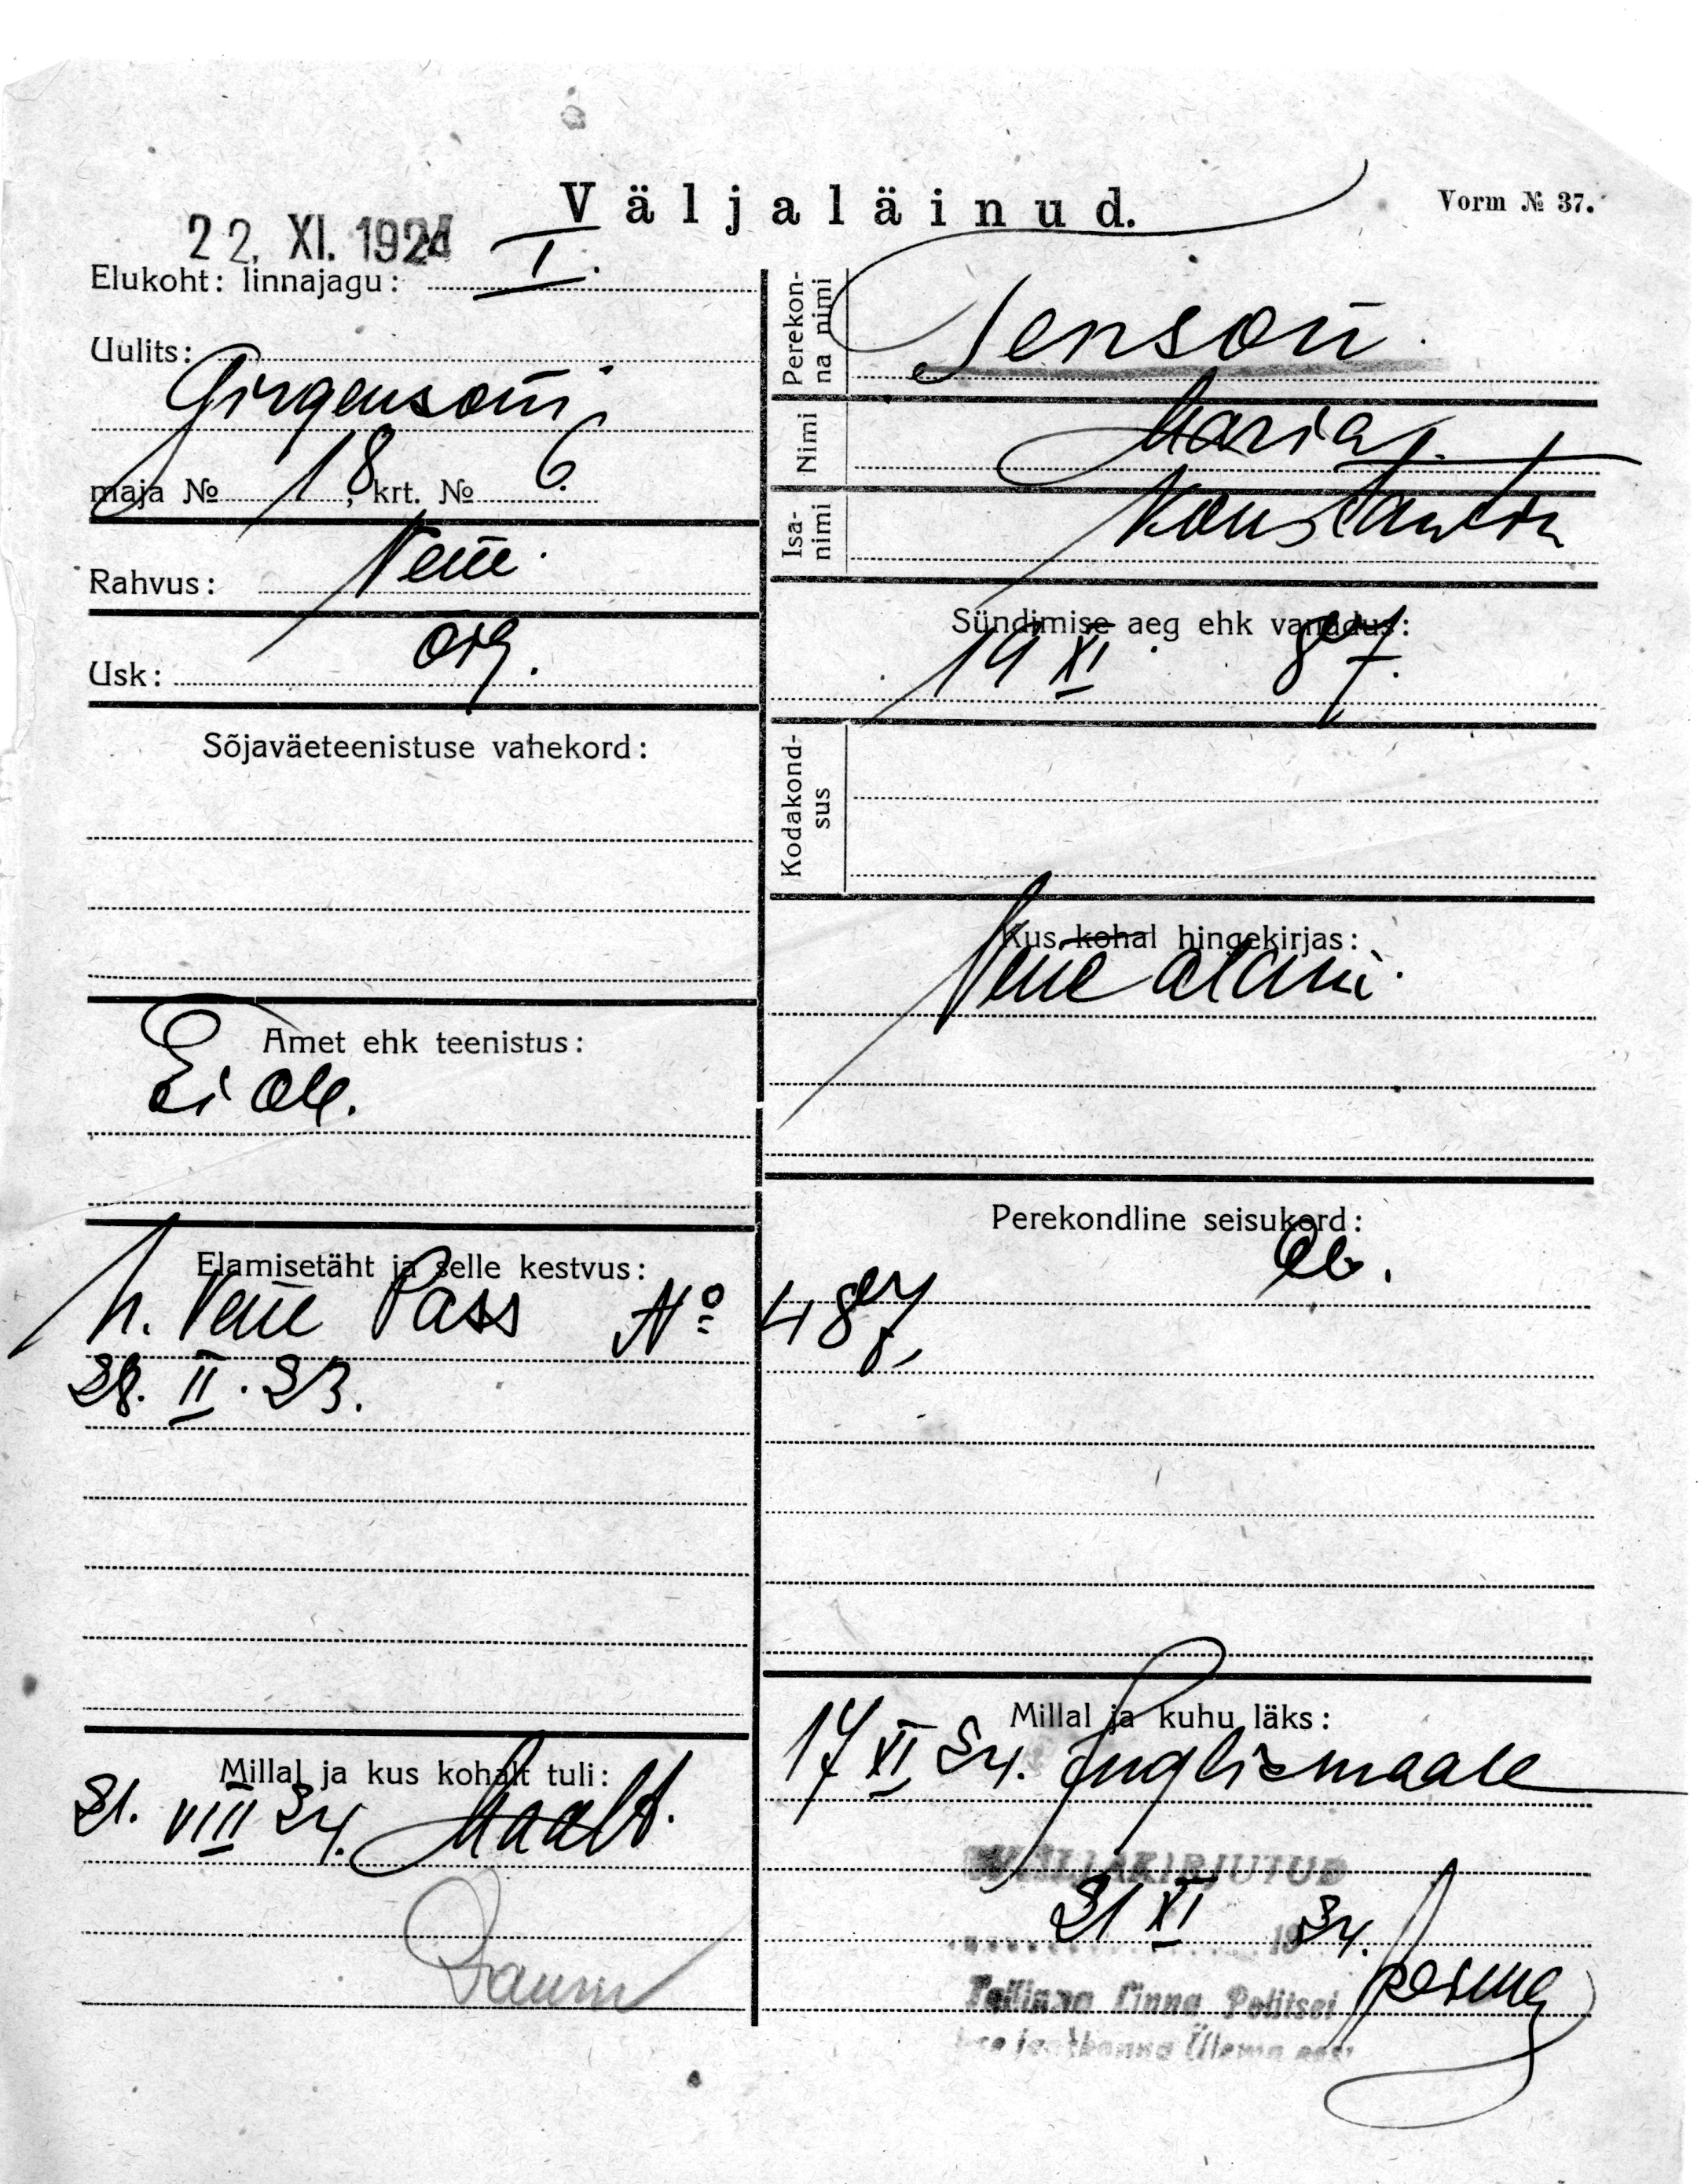 Väljaläinud.
Vorm № 37.
22. XI. 1924
Elukoht: linnajagu: I.
Uulits:
Girgensoni
maja № 18, krt. № 6.
Rahvus: Vene.
Usk: õig.
Sõjaväeteenistuse vahekord:
Amet ehk teenistus:
Ei ole.
Elamisetäht ja selle kestvus:
N. Vene Pass № 487,
28. II. 23.
Millal ja kus kohalt tuli:
21. VIII 24. Maalt.
Perekon-
na nimi
Jenson.
Nimi
Maria
Isa-
nimi
Konstantin
Sündimise aeg ehk vanadus:
19 XI 87.
Kodakond-
sus
Kus kohal hingekirjas:
Vene alam.
Perekondline seisukord:
Millal ja kuhu läks:
17 XI 24. Inglismaale
VÄLJAKIRJUTUD
21 XI 1924.
Tallinna Linna Politsei
jaoskonna Ülema